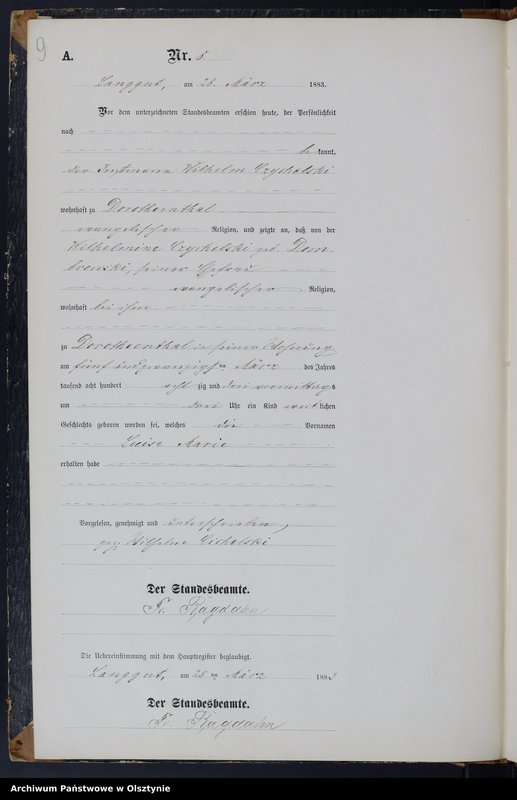 9
A.
Nr. 8
Langgut, am 28. März 1883.
Vor dem unterzeichneten Standesbeamten erschien heute, der Persönlichkeit
nach
be kannt,
der Instmann Wilhelm Czychelski
wohnhaft zu Dorotheenthal
evangelischer Religion, und zeigte an, daß von der
Wilhelmine Czychelski geb. Dom-
browski, seiner Ehefrau
evangelischer Religion,
wohnhaft bei ihm
zu Dorotheenthal in seiner Wohnung
am fünf und zwanzigsten März des Jahres
tausend acht hundert acht zig und drei vormittags
um drei Uhr ein Kind weiblichen
Geschlechts geboren worden sei, welches die Vornamen
Luise Marie
erhalten habe
Vorgelesen, genehmigt und unterschrieben,
gez. Wilhelm Cichelski
Der Standesbeamte.
Fr. Ragdahn
Die Uebereinstimmung mit dem Hauptregister beglaubigt.
Langgut, am 28ten März 1883
Der Standesbeamte.
Fr. Ragdahn
Archiwum Państwowe w Olsztynie